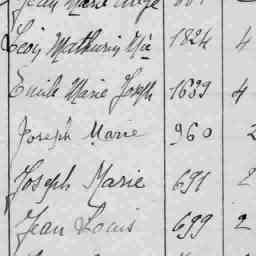 Jean Marie Ange 601
Léon Mathurin Mie 1824 4
Emile Marie Joseph 1639 4
Joseph Marie 960 2
Joseph Marie 691 2
Jean Louis 699 2